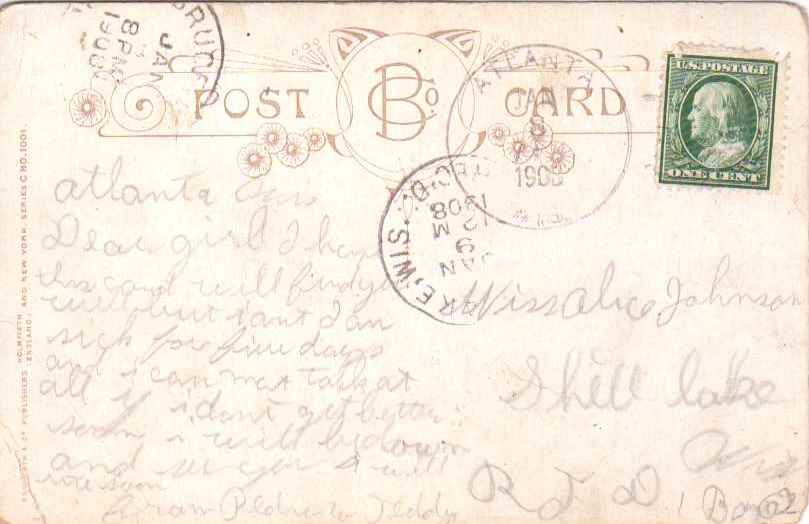 BRUCE
JAN
8 PM
1908
POST CARD
B Co
ATLANTA
JAN
8
1908
U.S. POSTAGE
ONE CENT
REC'D.
1908
12 M
9
JAN
LAKE, WIS.
SERIES C NO. 1001.
PUBLISHERS HOLMFIRTH AND NEW YORK.
ENGLAND.
atlanta
Dear girl I hope
this card will find you
well but I an
sick for five days
and i can not talk at
all if i dont get better
soon i will be down
and see you will
rite soon
from to Teddy
Miss Johnson
Shell lake
Wis
R F D 1 Box 2